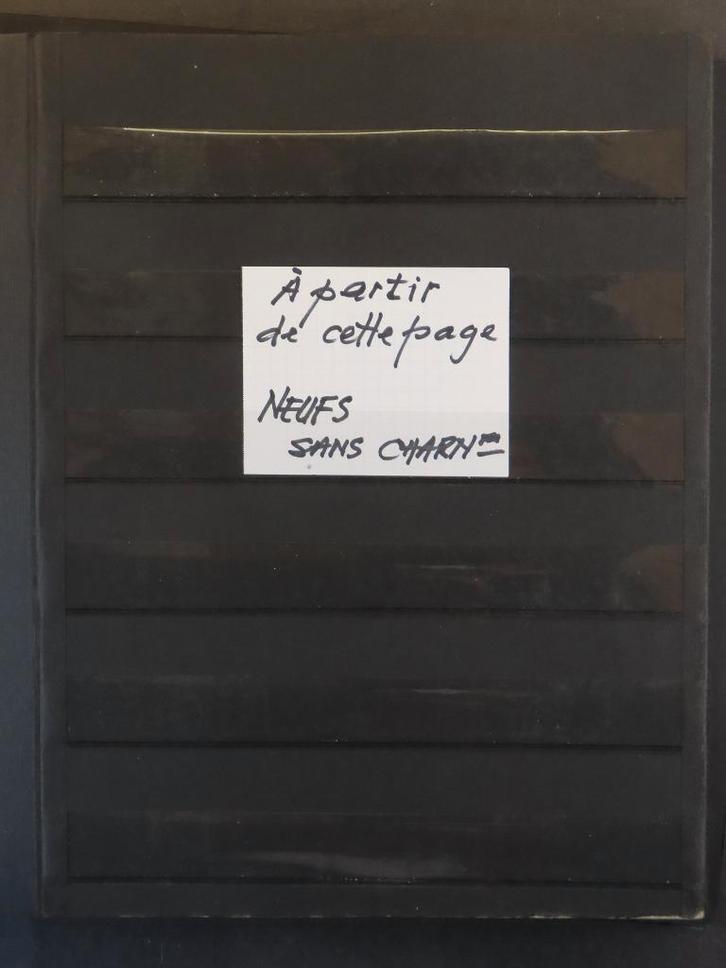 À partir
de cette page
NEUFS
SANS CHARNRE